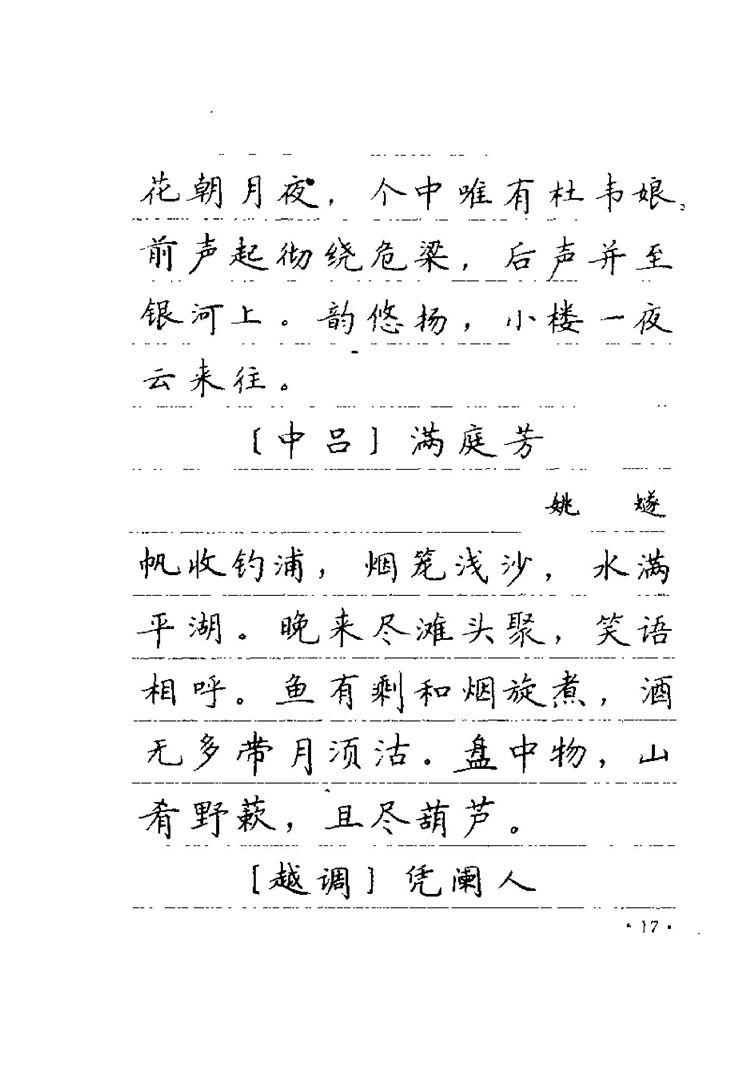 花朝月夜，个中唯有杜韦娘。
前声起彻绕危梁，后声并至
银河上。韵悠扬，小楼一夜
云来往。
［中吕］满庭芳
姚 燧
帆收钓浦，烟笼浅沙，水满
平湖。晚来尽滩头聚，笑语
相呼。鱼有剩和烟旋煮，酒
无多带月须沽。盘中物，山
肴野蔌，且尽葫芦。
［越调］凭阑人
·17·